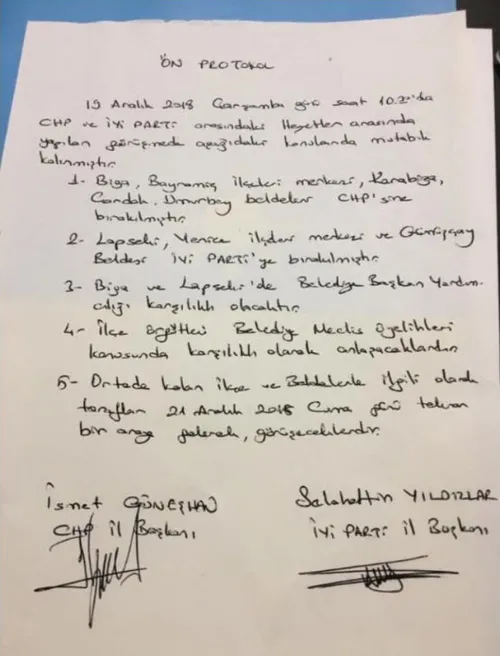 ÖN PROTOKOL
19 Aralık 2018 Çarşamba günü saat 10.30'da
CHP ve İYİ PARTİ arasındaki Heyetler arasında
yapılan görüşmede aşağıdaki konularda mutabık
kalınmıştır.
1- Biga, Bayramiç ilçeleri merkezi, Karabiga,
Çardak, Umurbey beldeleri CHP'sine
bırakılmıştır.
2- Lapseki, Yenice ilçeleri merkezi ve Gümüşçay
Beldesi İYİ PARTİ'ye bırakılmıştır.
3- Biga ve Lapseki'de Belediye Başkan Yardım-
cılığı karşılıklı olacaktır.
4- İlçe örgütleri Belediye Meclis üyelikleri
konusunda karşılıklı olarak anlaşacaklardır.
5- Ortada kalan ilçe ve Beldelerle ilgili olarak
taraflar 21 Aralık 2018 Cuma günü tekrar
bir araya gelerek, görüşeceklerdir.
İsmet GÜNEŞHAN
CHP İl Başkanı
Selahattin YILDIZLAR
İYİ PARTİ İl Başkanı